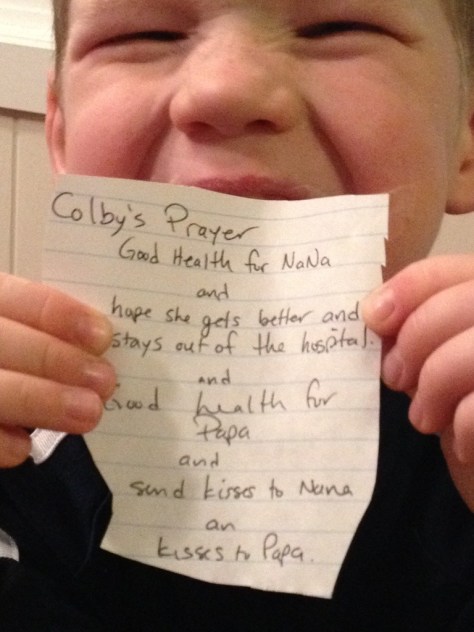 Colby's Prayer
Good Health for NaNa
and
hope she gets better and
stays out of the hospital.
and
Good health for
Papa
and
send kisses to Nana
an
kisses to Papa.